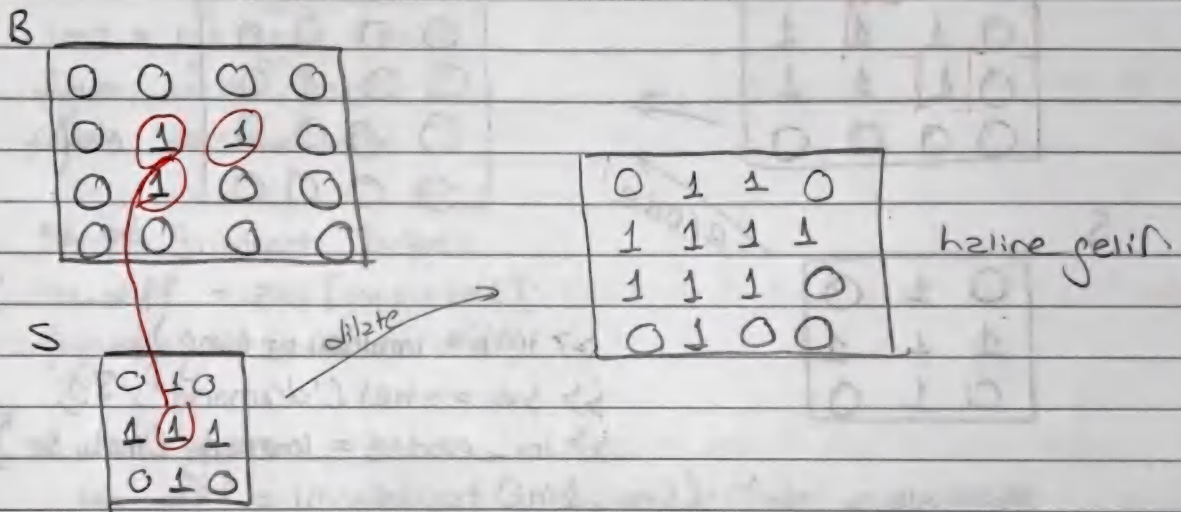 B
0 0 0 0
0 1 1 0
0 1 0 0
0 0 0 0
S
0 1 0
1 1 1
0 1 0
dilate
0 1 1 0
1 1 1 1
1 1 1 0
0 1 0 0
haline gelir